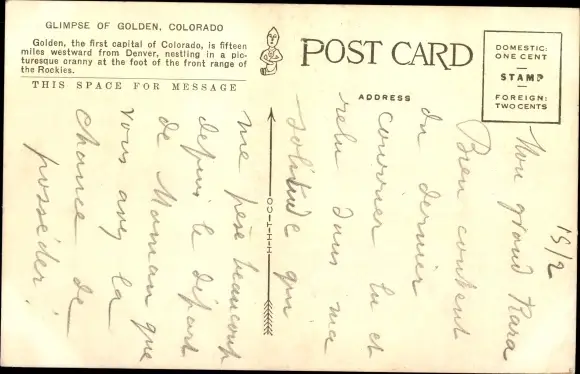 GLIMPSE OF GOLDEN, COLORADO
Golden, the first capital of Colorado, is fifteen
miles westward from Denver, nestling in a pic-
turesque cranny at the foot of the front range of
the Rockies.
THIS SPACE FOR MESSAGE
POST CARD
ADDRESS
DOMESTIC:
ONE CENT
STAMP
FOREIGN:
TWO CENTS
CO-T-H-H-I
15/2
Mon grand Rara
Bien content
du dernier
courrier lu et
relu dans ma
solitude qui
me pèse beaucoup
depuis le départ
de Maman que
vous avez la
chance de
posséder !